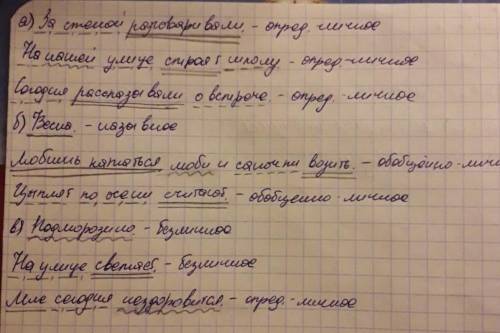 а) За стеной разговаривали. - опред. личное
На нашей улице строят школу. - опред.-личное
Сегодня рассказывали о встрече. - опред.-личное
б) Весна. - назывное
Любишь кататься люби и саночки возить. - обобщённо-личн
Цыплят по осени считают. - обобщенно-личное
в) Подморозило. - безличное
На улице светает. - безличное
Мне сегодня нездоровится. - опред.-личное